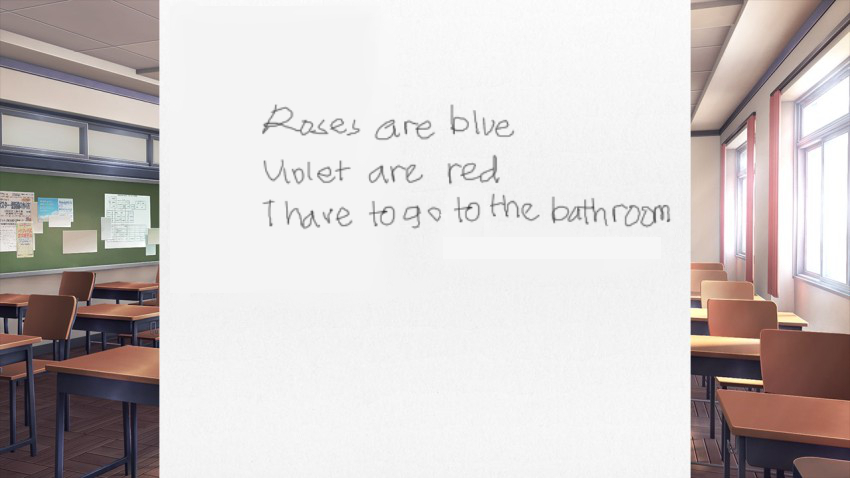 Roses are blue
Violet are red
I have to go to the bathroom